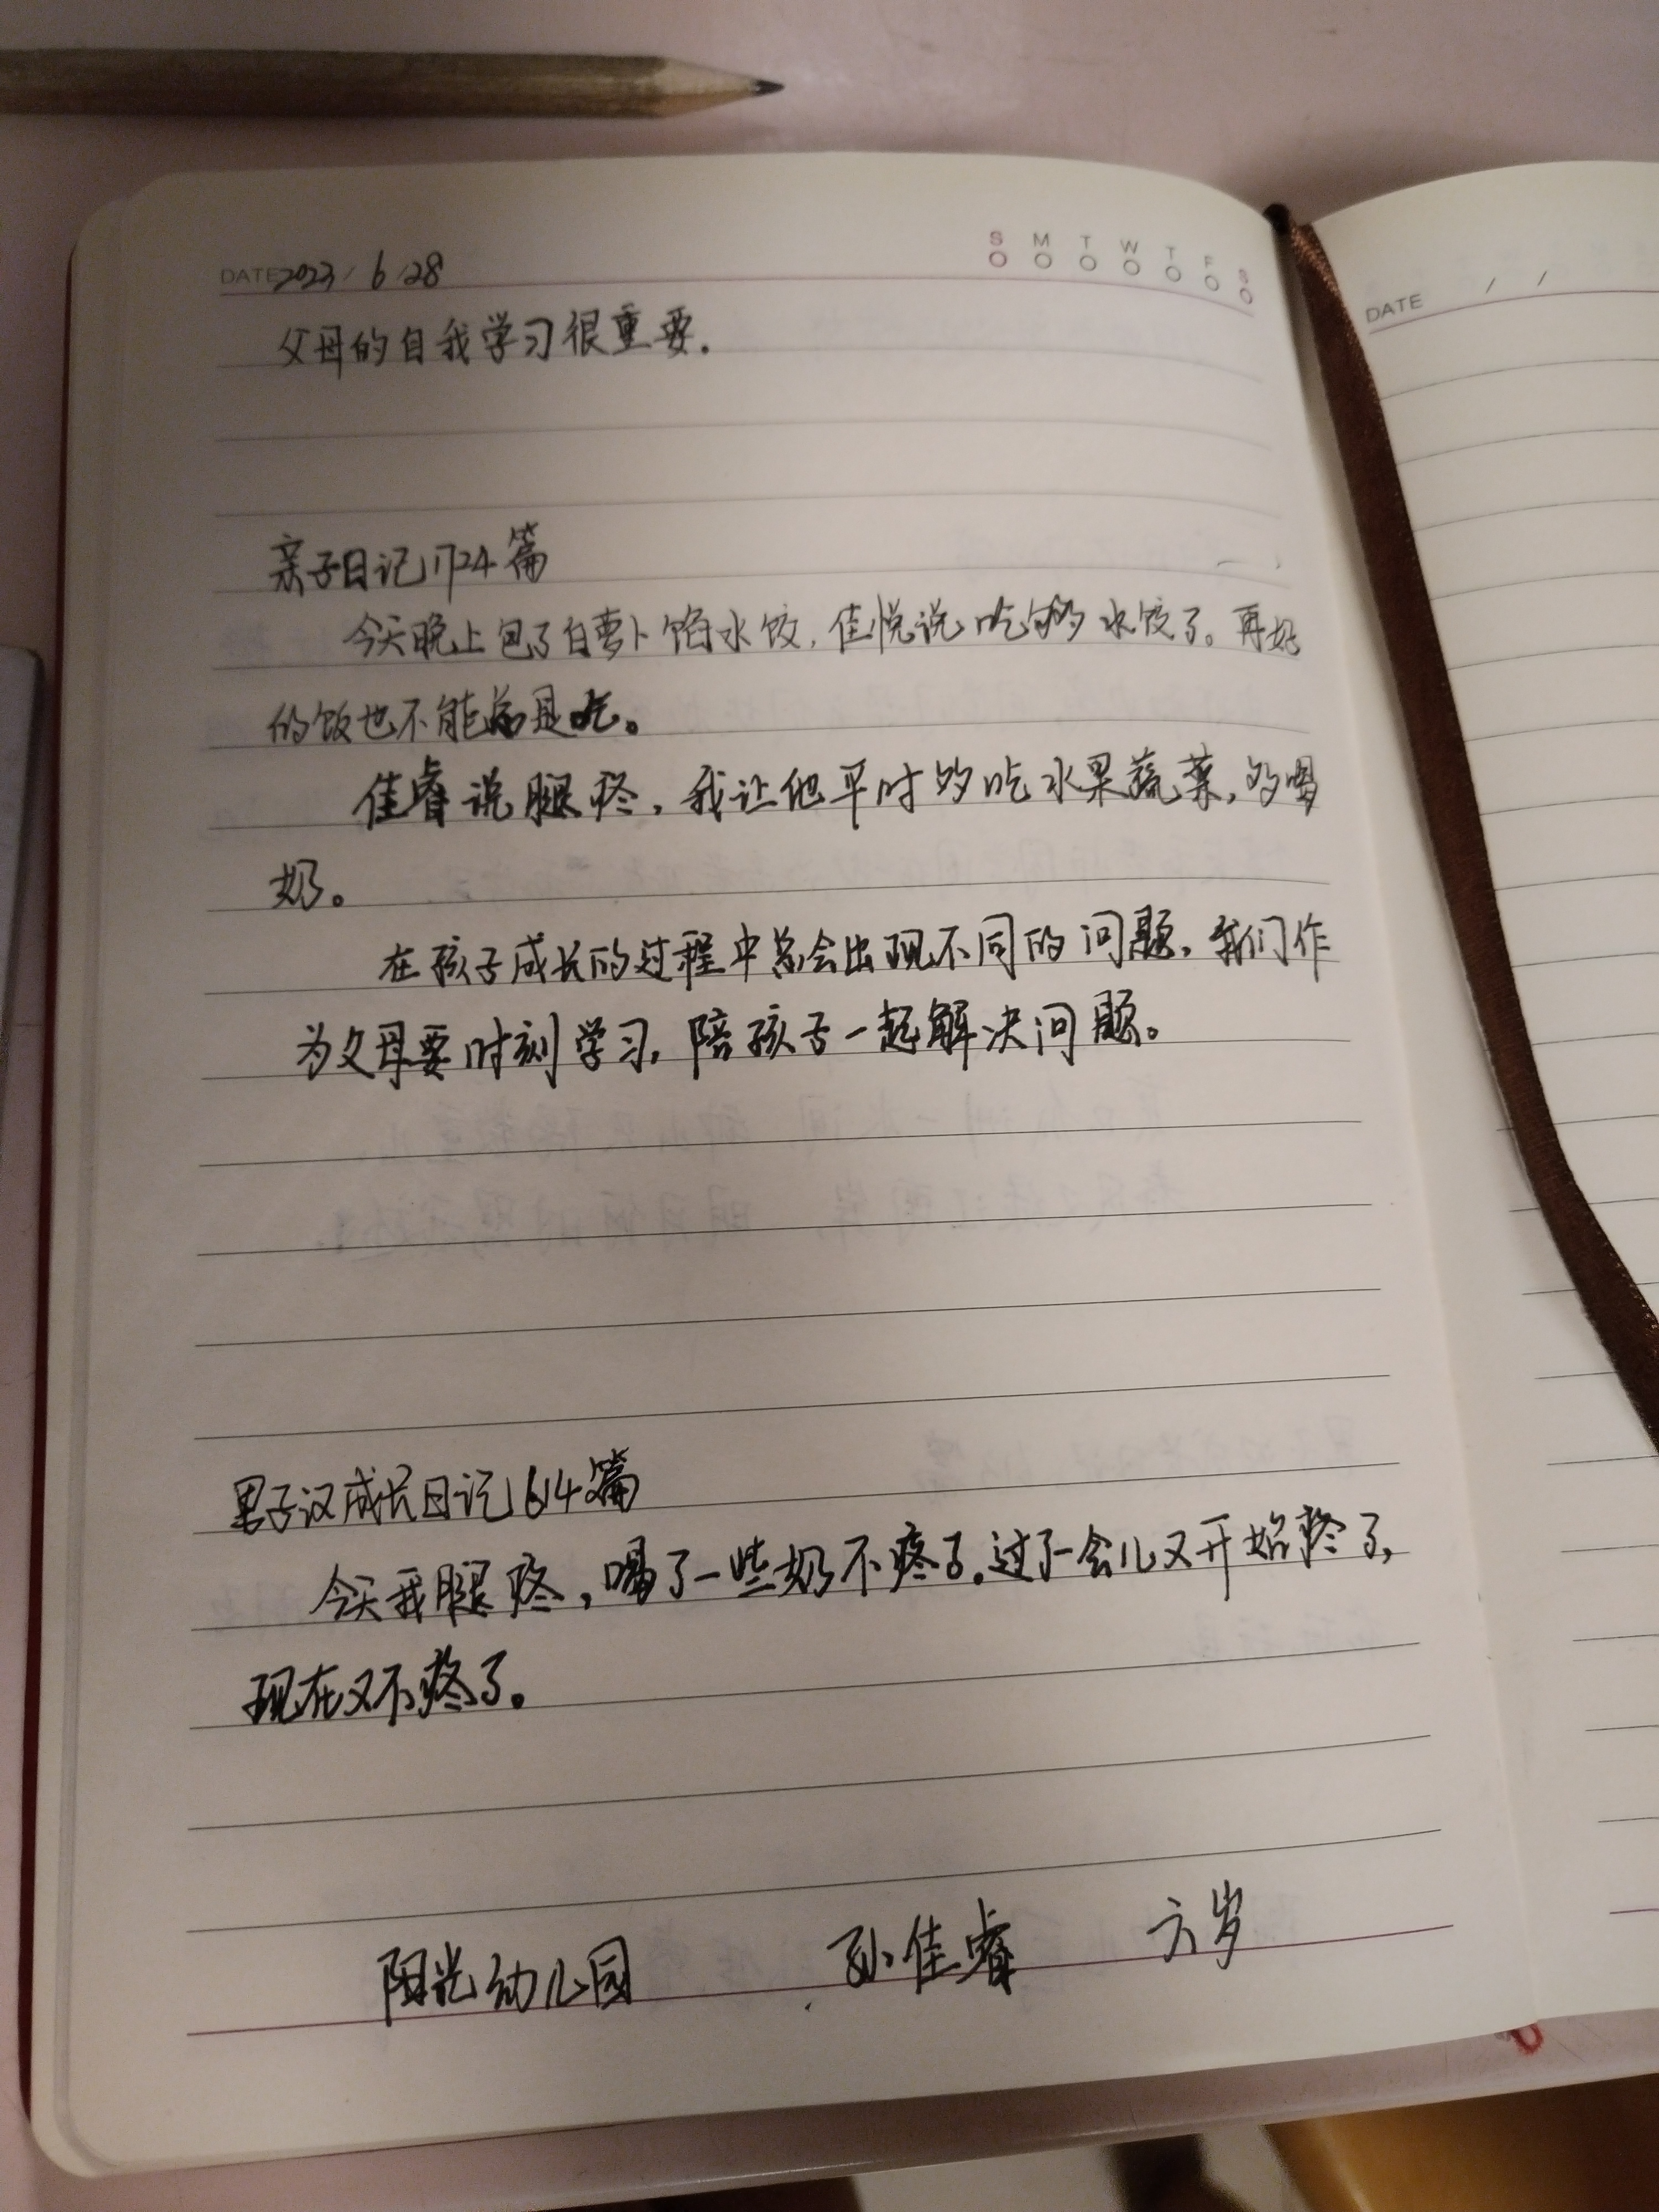 DATE 2023 / 6 / 28
S M T W T F S
父母的自我学习很重要.
亲子日记1724篇
今天晚上包了白萝卜馅水饺，佳悦说吃够水饺了。再好
的饭也不能总是吃。
佳睿说腿疼，我让他平时多吃水果蔬菜，多喝
奶。
在孩子成长的过程中总会出现不同的问题，我们作
为父母要时刻学习，陪孩子一起解决问题。
男子汉成长日记1614篇
今天我腿疼，喝了一些奶不疼了。过了一会儿又开始疼了，
现在又不疼了。
阳光幼儿园 孙佳睿 六岁
DATE / /